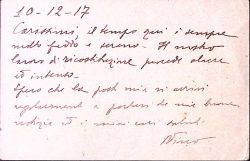 10-12-17
Carissimi, il tempo qui è sempre
molto freddo e sereno. Il nostro
lavoro di ricostruzione procede alacre
ed intenso.
Spero che la posta mia vi arrivi
regolarmente a portarvi le mie buone
notizie ed i miei cari saluti.
Nino